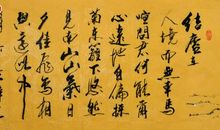 結廬在
人境而無車馬
喧問君何能爾
心遠地自偏採
菊東籬下悠然
見南山山氣日
夕佳飛鳥相
與還此中